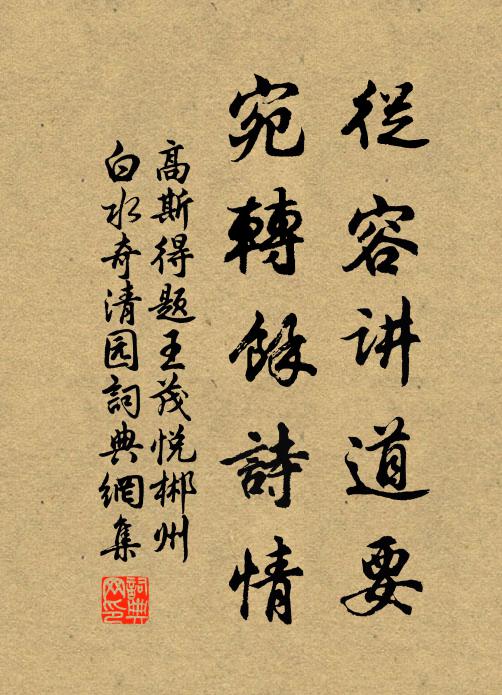 從容讲道要
宛轉餘詩情
高斯得题王茂悦郴州
白水奇清园詞典網集
詞典网印